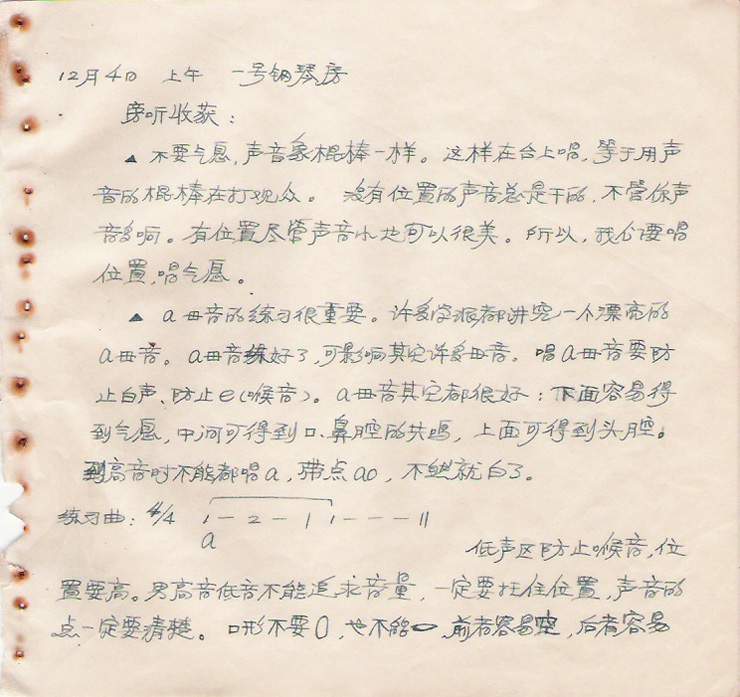 12月4日 上午 一号钢琴房
旁听收获：
▲ 不要气息，声音象棍棒一样。这样在台上唱，等于用声
音的棍棒在打观众。没有位置的声音总是干的，不管你声
音多响。有位置尽管声音小也可以很美。所以，我们要唱
位置，唱气息。
▲ a母音的练习很重要。许多学派都讲究一个漂亮的
a母音。a母音练好了，可影响其它许多母音。唱a母音要防
止白声、防止e（喉音）。a母音其它都很好：下面容易得
到气息，中间可得到口、鼻腔的共鸣，上面可得到头腔。
到高音时不能都唱a，带点ao，不然就白了。
练习曲：4/4 i - 2 - | i - - - ||
a
低声区防止喉音，位
置要高。男高音低音不能追求音量，一定要托住位置，声音的
点一定要清楚。口形不要0，也不能⬭，前者容易空，后者容易